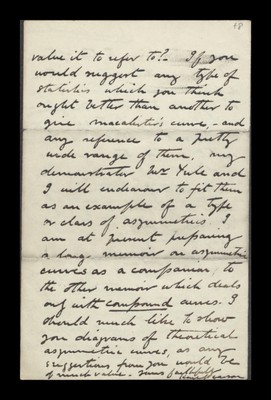 18
value it to refer to? - If you
would suggest any type of
statistics which you think
ought better than another to
give macalister's curve, - and
any reference to a pretty
wide range of them, my
demonstrator Mr Yule and
I will endeavour to fit them
as an example of a type
or class of asymmetries. I
am at present preparing
a long memoir on asymmetric
curves as a companion to
the other memoir which deals
only with compound curves. I
should much like to show
you diagrams of theoretical
asymmetric curves, as any
suggestions from you would be
of much value. Yours faithfully
Karl Pearson